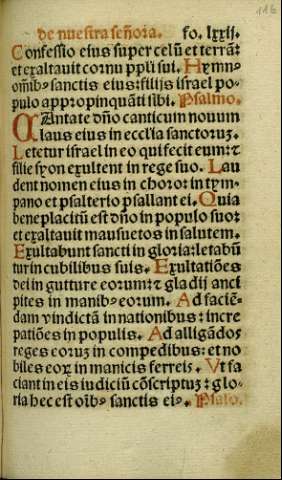 116
de nuestra señora. fo. lxxij.
Confessio eius super celũ et terrã:
et exaltauit cornu ppl̃i sui. Hymnꝰ
om̃ibꝰ sanctis eius: filijs israel po-
pulo appropinquãti sibi. Psalmo.
CAntate dño canticum nouum
laus eius in ecclĩa sanctoruꝫ.
Letetur israel in eo qui fecit eum: ⁊
filie syon exultent in rege suo. Lau
dent nomen eius in choro: in tym-
pano et psalterio psallant ei. Quia
beneplacitũ est dño in populo suo:
et exaltauit mansuetos in salutem.
Exultabunt sancti in gloria: letabũ
tur in cubilibus suis. Exultatiões
dei in gutture eorum: ⁊ gladij anci
pites in manibꝰ eorum. Ad faciẽ-
dam vindictã in nationibus: incre
patiões in populis. Ad alligãdos
reges eoruꝫ in compedibus: et no
biles eoꝝ in manicis ferreis. Ut fa
ciant in eis iudiciũ cõscriptuꝫ: glo-
ria hec est oĩbꝰ sanctis eiꝰ. Psalo.